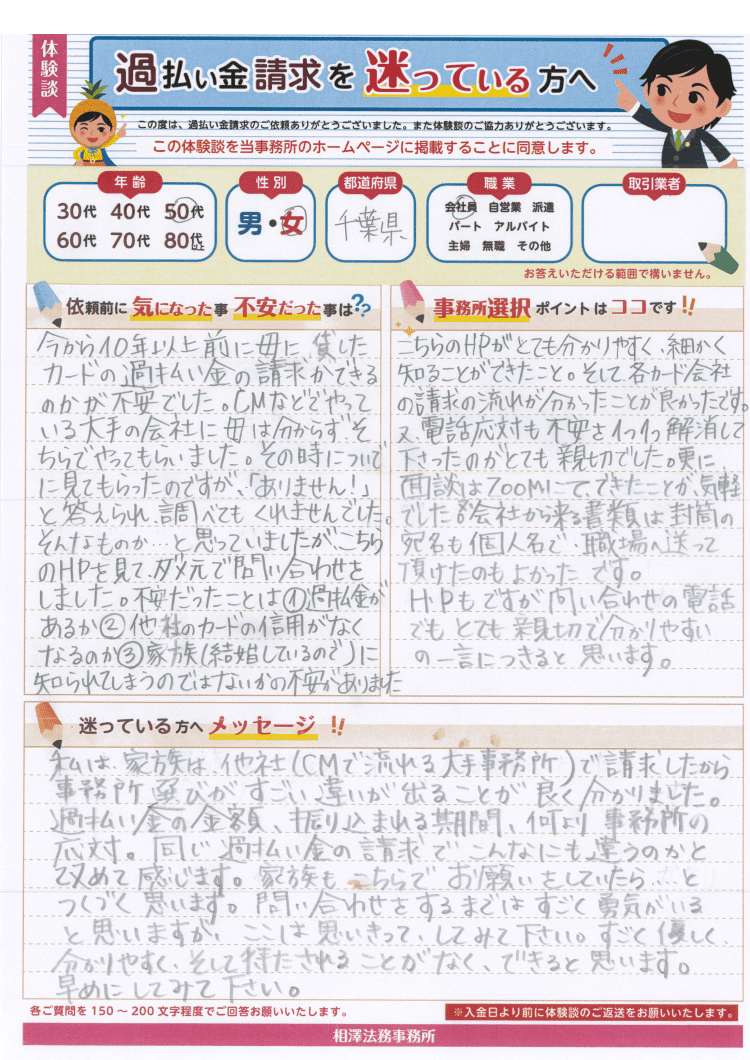 体験談
過払い金請求を迷っている方へ
この度は、過払い金請求のご依頼ありがとうございました。また体験談のご協力ありがとうございます。
この体験談を当事務所のホームページに掲載することに同意します。
年齢
30代 40代 50代
60代 70代 80代以上
性別
男・女
都道府県
千葉県
職業
会社員 自営業 派遣
パート アルバイト
主婦 無職 その他
取引業者
お答えいただける範囲で構いません。
依頼前に気になった事 不安だった事は??
今から10年以上前に母に貸した
カードの過払い金の請求ができる
のかが不安でした。CMなどでやって
いる大手の会社に母は分からず、そ
ちらでやってもらいました。その時についで
に見てもらったのですが、「ありません!」
と答えられ、調べてもくれませんでした。
そんなものか…と思っていましたが、こちら
のHPを見て、ダメ元で問い合わせを
しました。不安だったことは①過払金が
あるか②他社のカードの信用がなく
なるのか③家族(結婚しているので)に
知られてしまうのではないかの不安がありました
事務所選択ポイントはココです!!
こちらのHPがとても分かりやすく、細かく
知ることができたこと。そして、各カード会社
の請求の流れが分かったことが良かったです。
又、電話応対も不安を1つ1つ解消して
下さったのがとても親切でした。更に
面談はZOOMにて、できたことが、気軽
でした。会社から来る書類は封筒の
宛名も個人名で、職場へ送って
頂けたのもよかったです。
HPもですが問い合わせの電話
でもとても親切で分かりやすい
の一言につきると思います。
迷っている方へメッセージ!!
私は、家族は、他社(CMで流れる大手事務所)で請求したから
事務所選びがすごい違いが出ることが良く分かりました。
過払い金の金額、振り込まれる期間、何より事務所の
応対。同じ過払い金の請求でこんなにも違うのかと
改めて感じます。家族もこちらでお願いをしていたら……と
つくづく思います。問い合わせをするまではすごく勇気がいる
と思いますが、ここは思いきって、してみて下さい。すごく優しく、
分かりやすく、そして待たされることがなく、できると思います。
早めにしてみて下さい。
各ご質問を150~200文字程度でご回答お願いいたします。
※入金日より前に体験談のご返送をお願いいたします。
相澤法務事務所